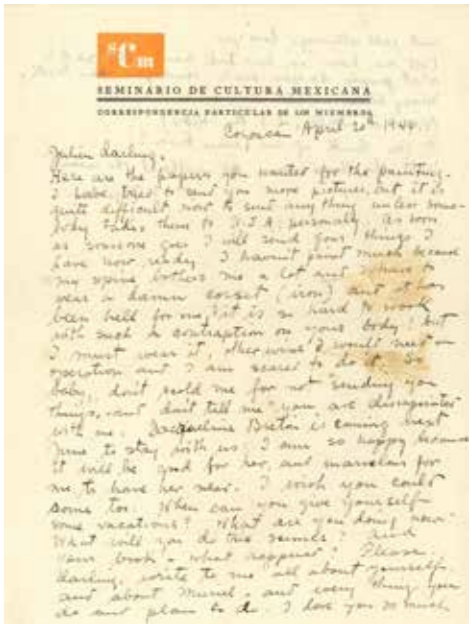 sCm
SEMINARIO DE CULTURA MEXICANA
CORRESPONDENCIA PARTICULAR DE LOS MIEMBROS
Coyoacán April 20th 1944
Julien darling,
Here are the papers you wanted for the painting.
I have tried to send you more pictures, but it is
quite difficult now to sent any thing unless some-
body takes them to U.S.A. personally. As soon
as someone goes I will send your things I
have now ready. I haven't paint much because
my spine bothers me a lot and I have to
wear a damn corset (iron) and it has
been hell for me, it is so hard to work
with such a contraption on your body! but
I must wear it, otherwise I would need an
operation and I am scared to do it. So
baby, don't scold me for not sending you
things, and don't tell me you are disappointed
with me. Jacqueline Breton is coming next
June to stay with us, I am so happy because
it will be good for her, and marvelous for
me, to have her near. I wish you could
come too. When can you give yourself
some vacations? What are you doing now?
What will you do this summer? And
your book - what happened? Please,
darling, write to me all about yourself.
and about Muriel, and every thing you
do and plan to do. I love you so much